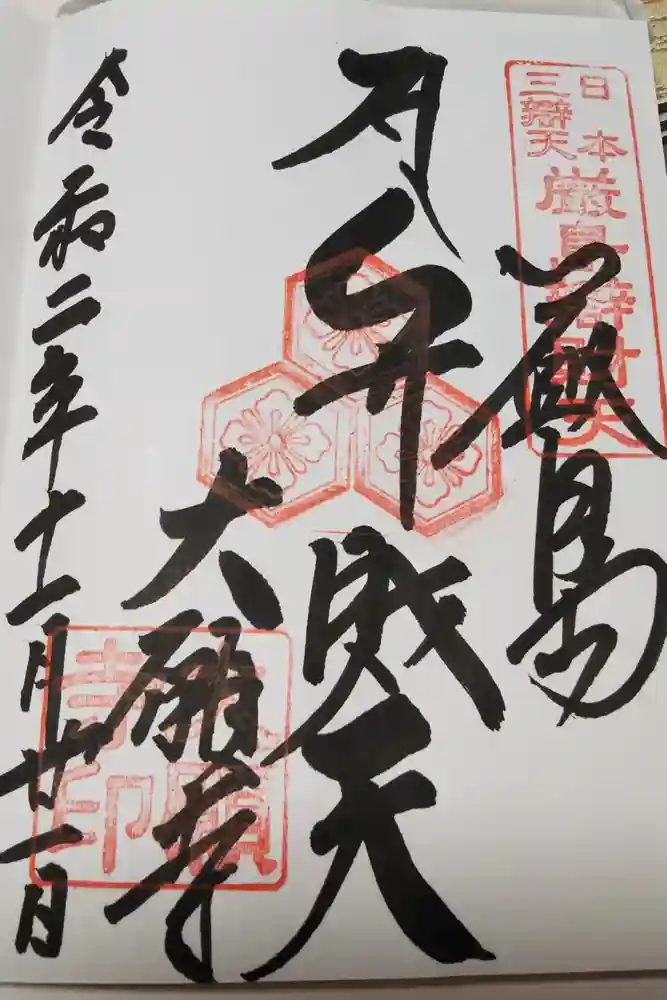 日本
三辯天
厳島辯財天
厳島
弁財天
大願寺
大願
寺印
令和二年十一月廿一日